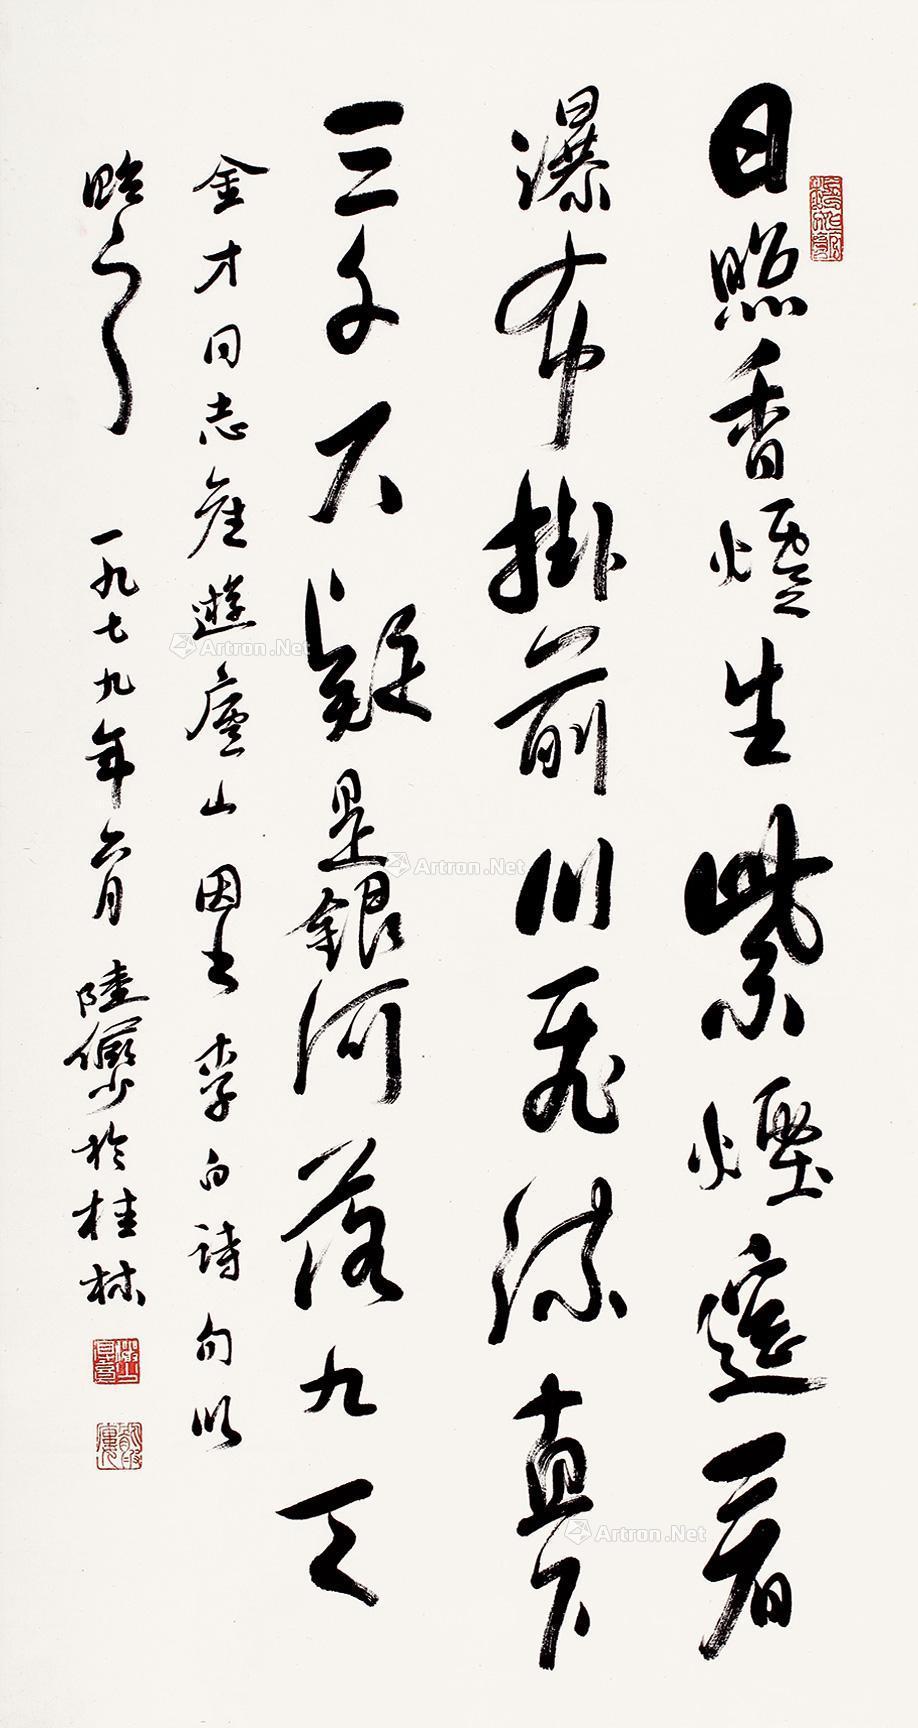 日照香爐生紫煙遥看
瀑布掛前川飛流直下
三千尺疑是銀河落九天
金才同志產遊廬山因書李白诗句以
贻之
一九七九年六月陸儼少於桂林
Artron.Net
Artron.Net
Artron.Net